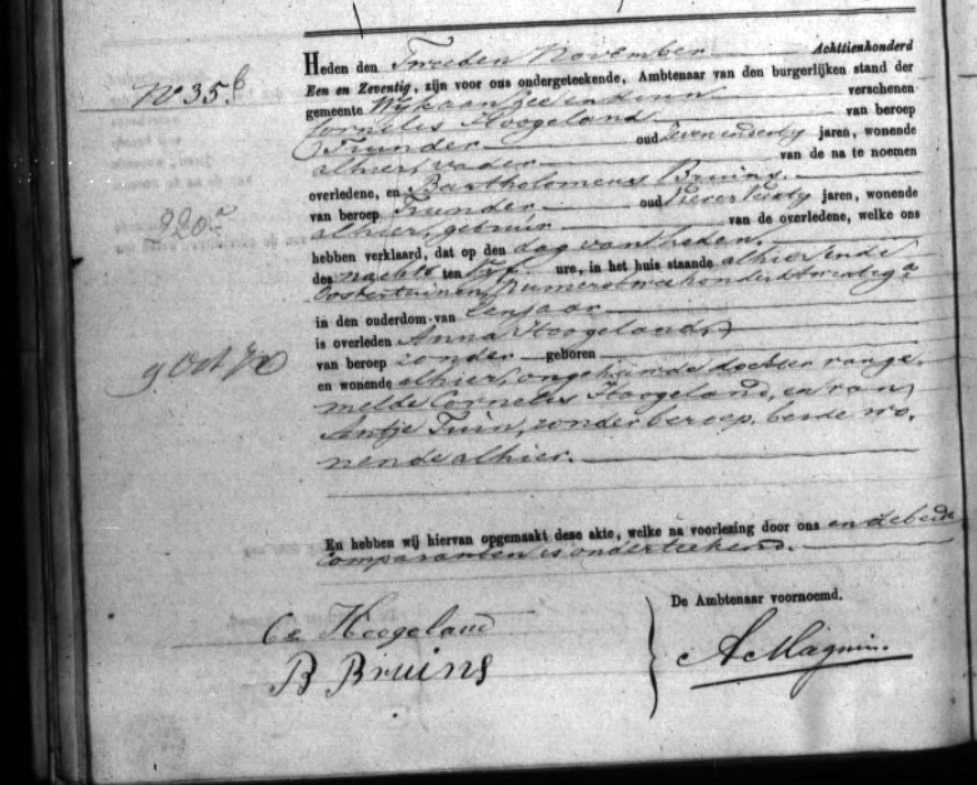 No 35.b
Heden den Tweeden November Achttienhonderd
Een en Zeventig, zijn voor ons ondergeteekende, Ambtenaar van den burgerlijken stand der
gemeente Wijk aan Zee en Duin verschenen
Cornelis Hoogeland van beroep
Tuinder oud Zeven en dertig jaren, wonende
alhier, vader van de na te noemen
overledene, en Bartholomeus Bruins,
van beroep Tuinder oud jaren, wonende
alhier, gebuur van de overledene, welke ons
hebben verklaard, dat op den dag van heden,
des nachts ten vijf ure, in het huis staande alhier in de
Oostertuinen, Numero twee honderd twintig a
220a
in den ouderdom van een jaar
is overleden Anna Hoogeland,
9 Oct 70
van beroep zonder geboren
en wonende alhier, ongehuwde dochter van ge-
melde Cornelis Hoogeland, en van
Antje Tuin, zonder beroep, beide wo-
nende alhier.
En hebben wij hiervan opgemaakt deze akte, welke na voorlezing door ons en de beide
comparanten is onderteekend.
De Ambtenaar voornoemd,
Cs Hoogeland
B Bruins